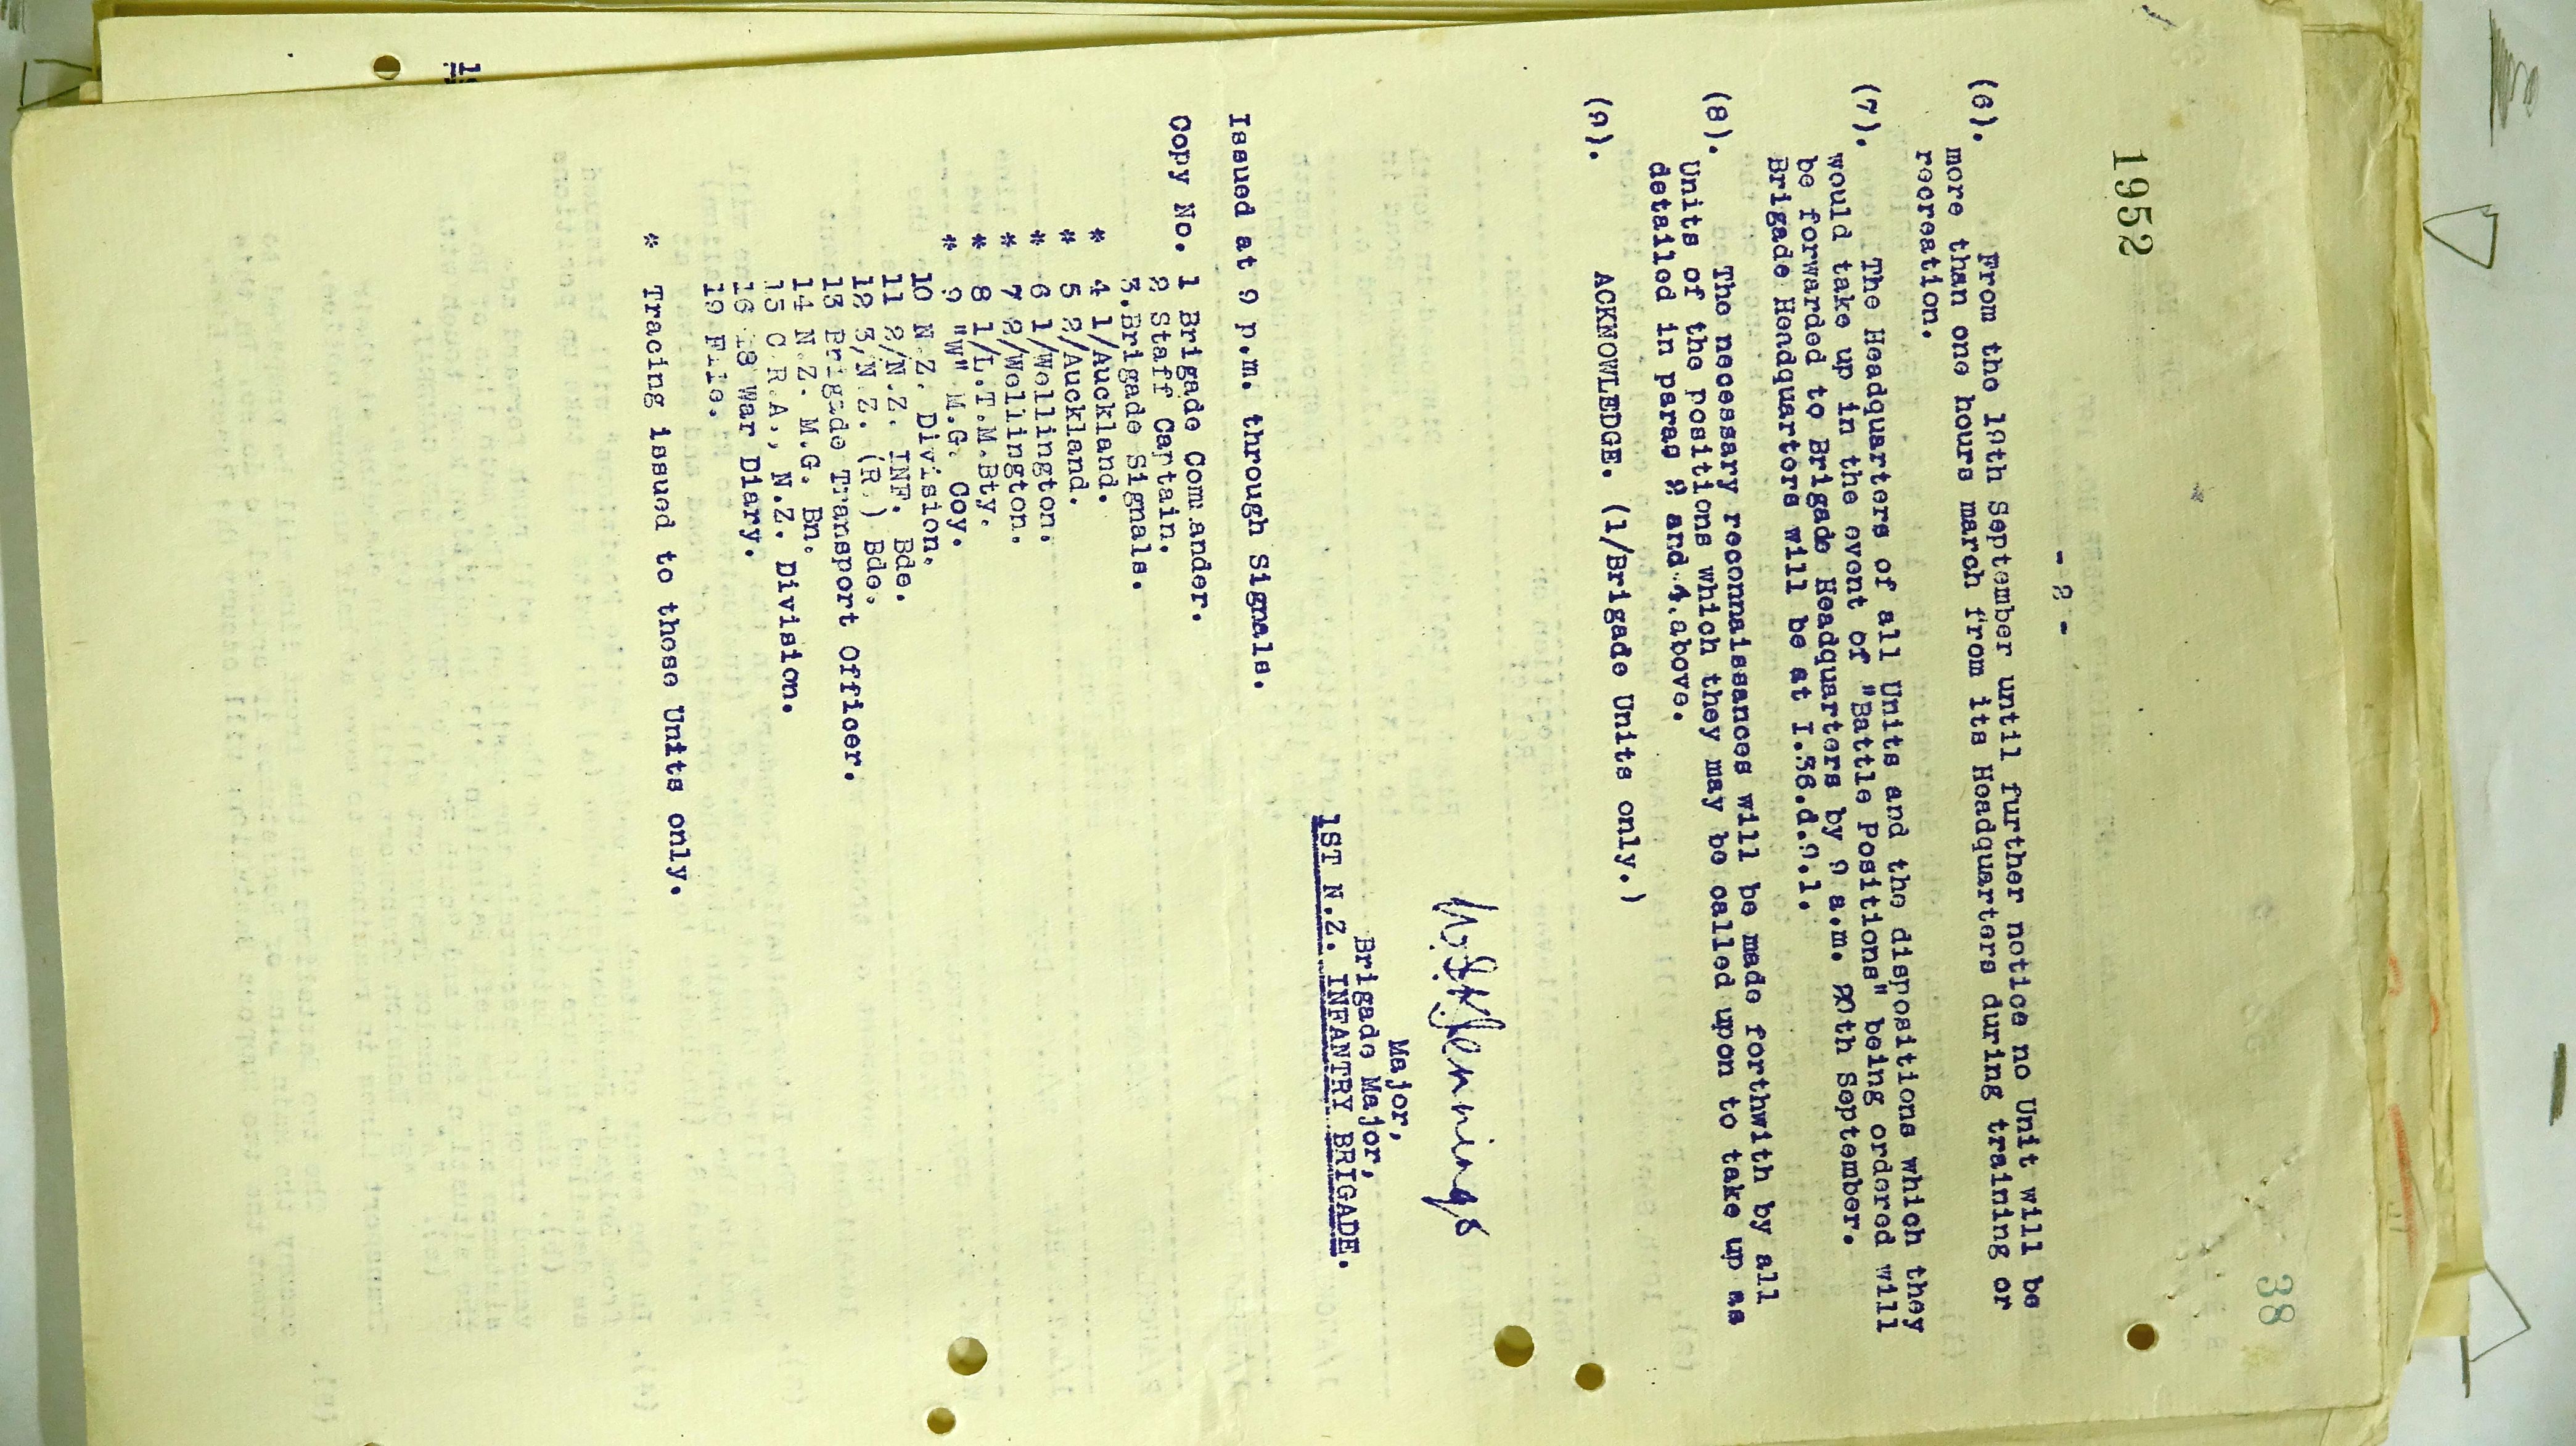 1952
38
- 2 -
(6). From the 19th September until further notice no Unit will be
more than one hours march from its Headquarters during training or
recreation.
(7). The Headquarters of all Units and the dispositions which they
would take up in the event of "Battle Positions" being ordered will
be forwarded to Brigade Headquarters by 9 a.m. 20th September.
Brigade Headquarters will be at I.36.d.9.1.
(8). The necessary reconnaissances will be made forthwith by all
Units of the positions which they may be called upon to take up as
detailed in paras 2 and 4.above.
(9). ACKNOWLEDGE. (1/Brigade Units only.)
Major,
Brigade Major,
1ST N.Z. INFANTRY BRIGADE.
Issued at 9 p.m. through Signals.
Copy No. 1 Brigade Commander.
2 Staff Captain.
3.Brigade Signals.
* 4 1/Auckland.
* 5 2/Auckland.
* 6 1/Wellington.
* 7 2/Wellington.
* 8 1/L.T.M.Bty.
* 9 "W" M.G. Coy.
10 N.Z. Division.
11 2/N.Z. INF. Bde.
12 3/N.Z. (R.) Bde.
13 Brigade Transport Officer.
14 N.Z. M.G. Bn.
15 C.R.A., N.Z. Division.
16 18 War Diary.
19 File.
* Tracing issued to those Units only.